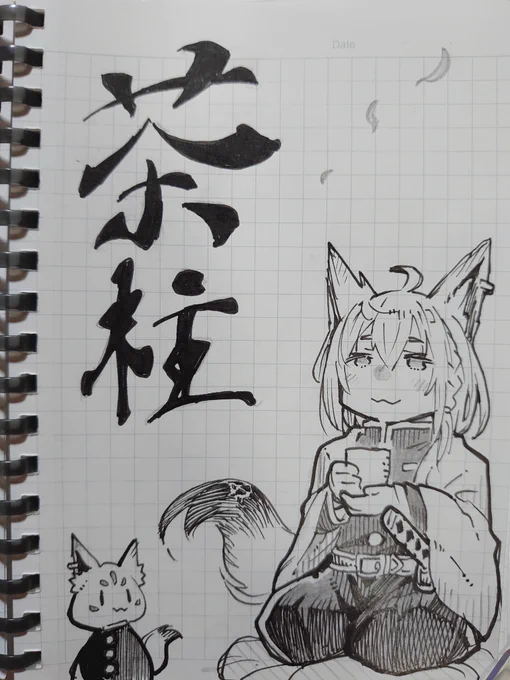 Date
茶柱